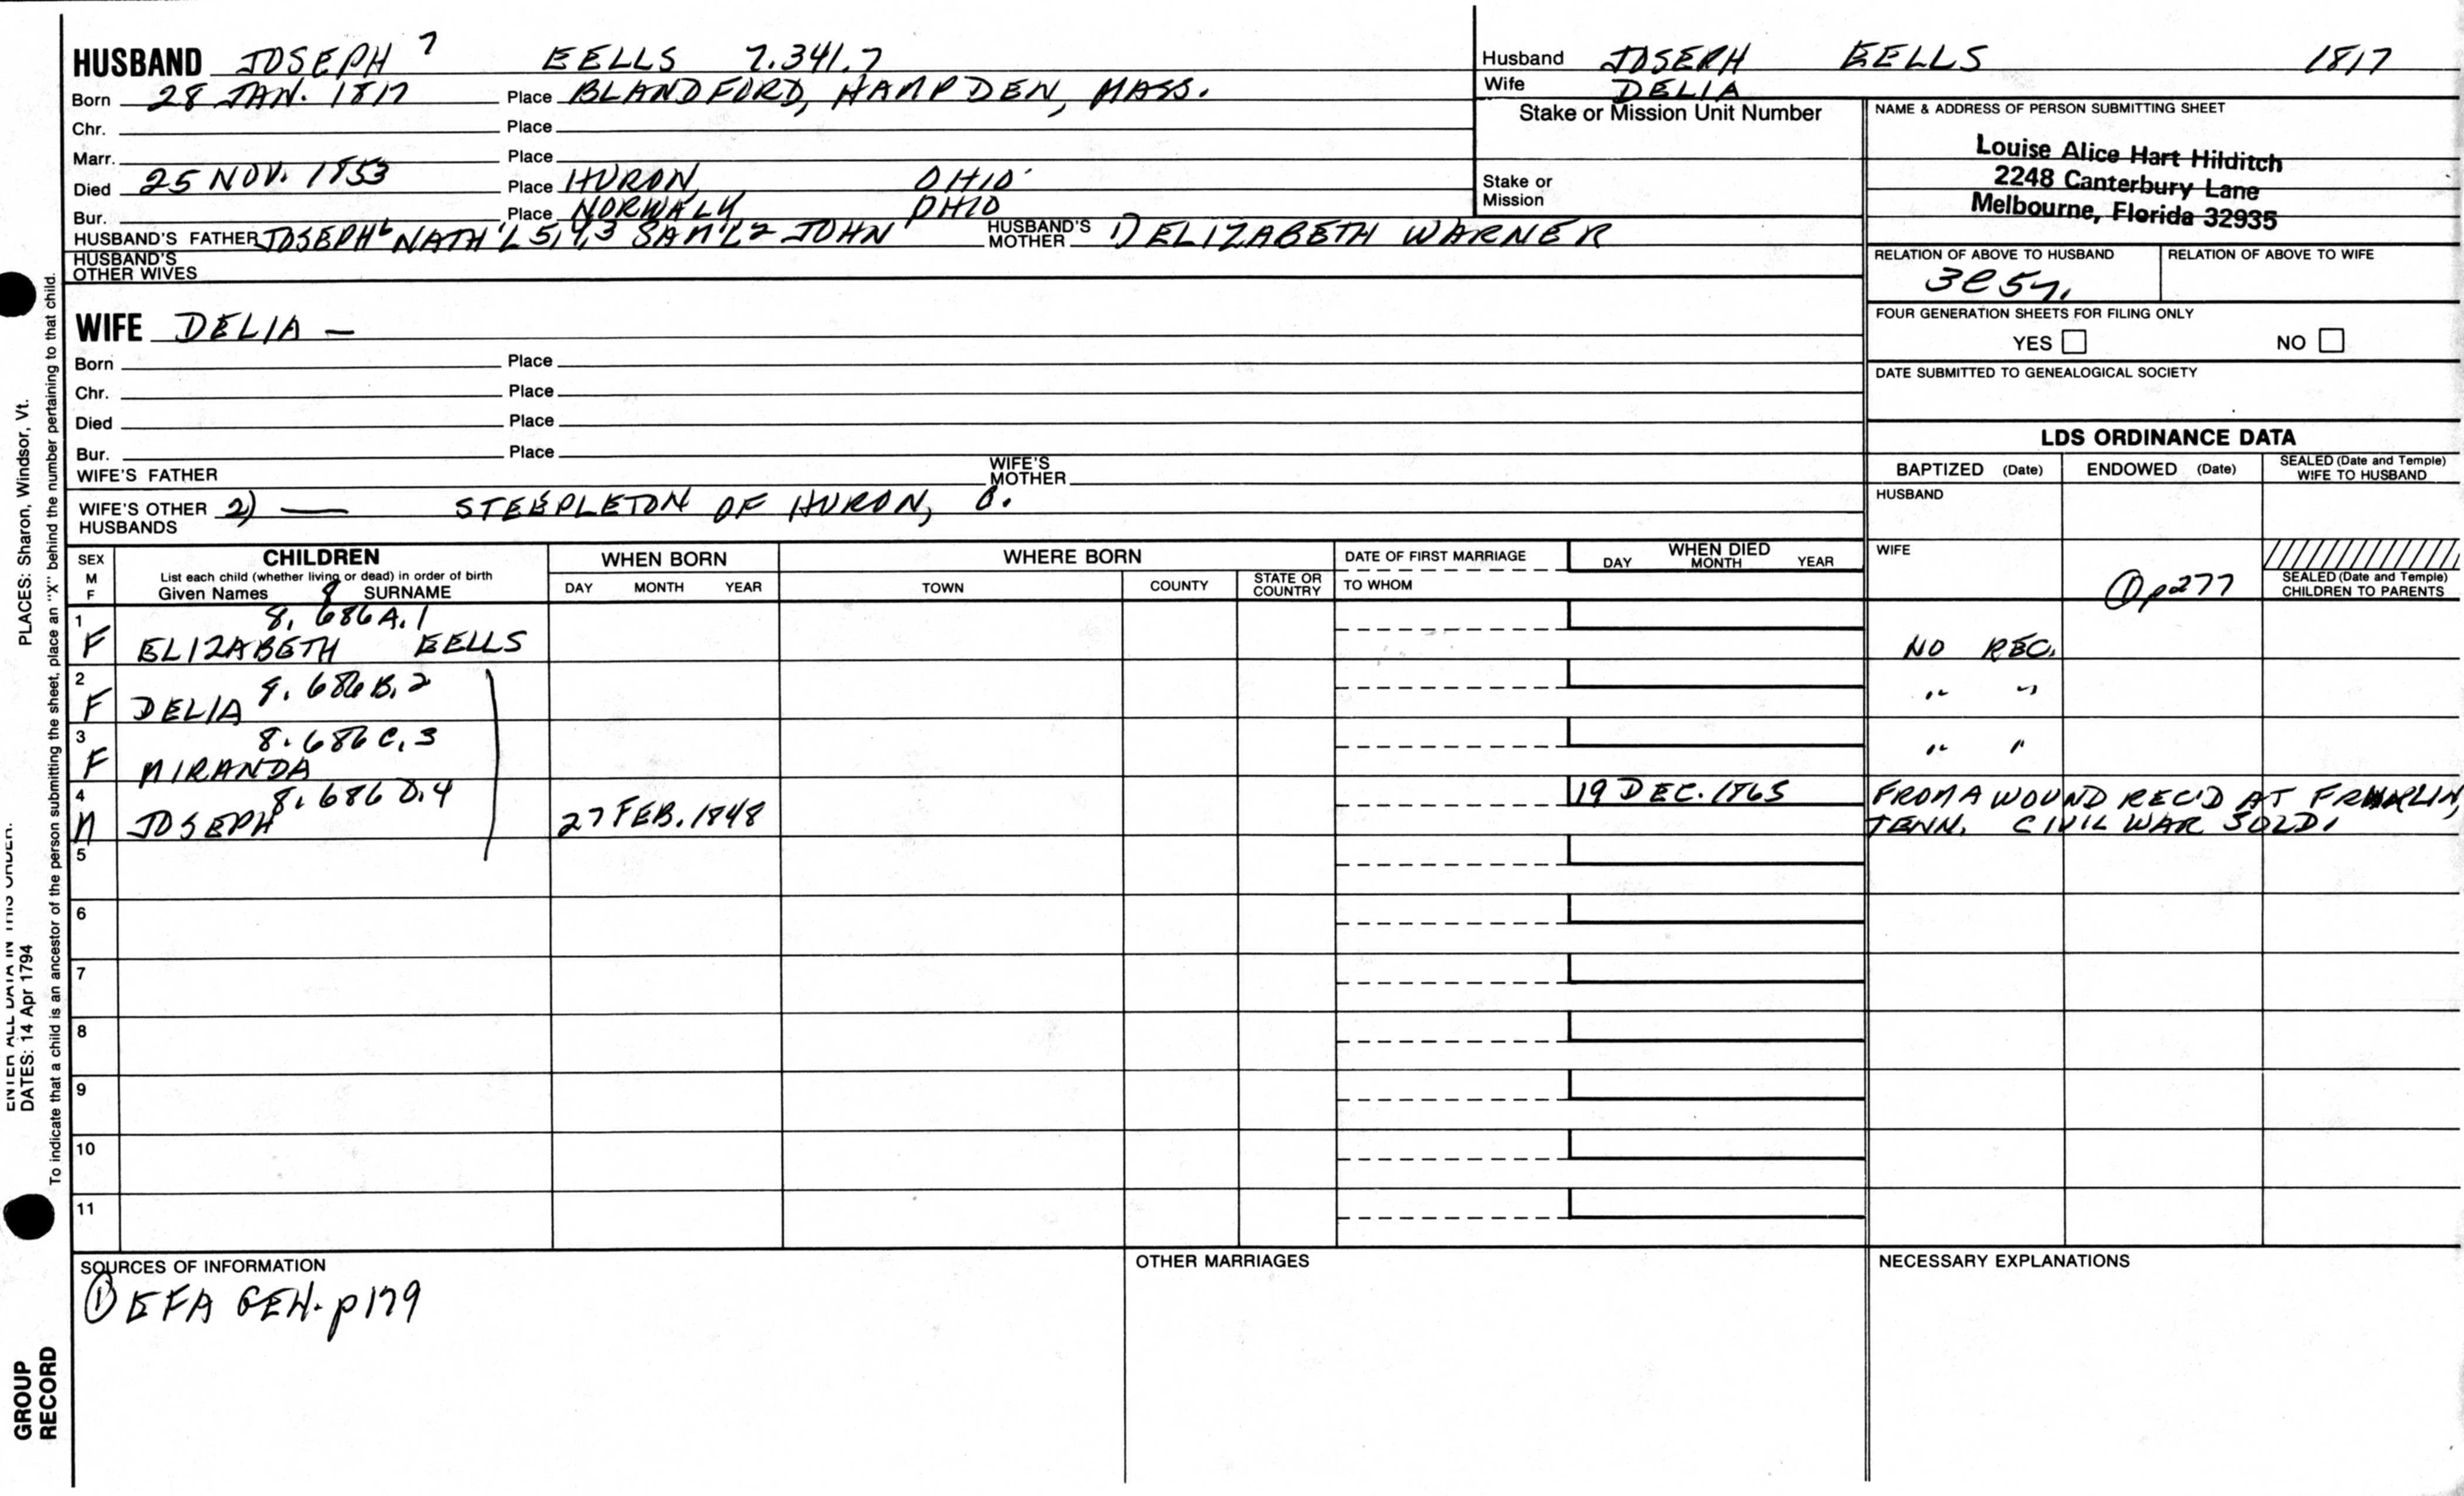 HUSBAND JOSEPH 7 EELLS 7.341.7
Born 28 JAN. 1817 Place BLANDFORD, HAMPDEN, MASS.
Chr. Place
Marr. Place
Died 25 NOV. 1853 Place HURON, OHIO
Bur. Place NORWALK, OHIO
HUSBAND'S FATHER JOSEPH 6 NATH'L 5,4,3 SAM'L 2 JOHN 1 HUSBAND'S MOTHER 1) ELIZABETH WARNER
HUSBAND'S OTHER WIVES
Husband JOSEPH EELLS 1817
Wife DELIA
Stake or Mission Unit Number
Stake or
Mission
NAME & ADDRESS OF PERSON SUBMITTING SHEET
Louise Alice Hart Hilditch
2248 Canterbury Lane
Melbourne, Florida 32935
RELATION OF ABOVE TO HUSBAND
RELATION OF ABOVE TO WIFE
FOUR GENERATION SHEETS FOR FILING ONLY
YES NO
DATE SUBMITTED TO GENEALOGICAL SOCIETY
WIFE DELIA —
Born Place
Chr. Place
Died Place
Bur. Place
WIFE'S FATHER WIFE'S MOTHER
WIFE'S OTHER HUSBANDS 2) — STEEPLETON OF HURON, O.
LDS ORDINANCE DATA
BAPTIZED (Date) ENDOWED (Date) SEALED (Date and Temple) WIFE TO HUSBAND
HUSBAND
WIFE
① p277
SEALED (Date and Temple) CHILDREN TO PARENTS
SEX M F
CHILDREN
List each child (whether living or dead) in order of birth
Given Names 8 SURNAME
WHEN BORN
DAY MONTH YEAR
WHERE BORN
TOWN COUNTY STATE OR COUNTRY
DATE OF FIRST MARRIAGE
TO WHOM
WHEN DIED
DAY MONTH YEAR
1 8. 686A.1
F ELIZABETH EELLS NO REC.
2 8. 686B.2
F DELIA " "
3 8. 686C.3
F MIRANDA " "
4 8. 686D.4 19 DEC. 1865 FROM A WOUND REC'D AT FRANKLIN,
M JOSEPH 27 FEB. 1848 TENN. CIVIL WAR SOLD.
5
6
7
8
9
10
11
SOURCES OF INFORMATION
① EFA GEN. p179
OTHER MARRIAGES
NECESSARY EXPLANATIONS
PLACES: Sharon, Windsor, Vt.
ENTER ALL DATA IN THIS ORDER:
DATES: 14 Apr 1794
To indicate that a child is an ancestor of the person submitting the sheet, place an "X" behind the number pertaining to that child.
GROUP
RECORD